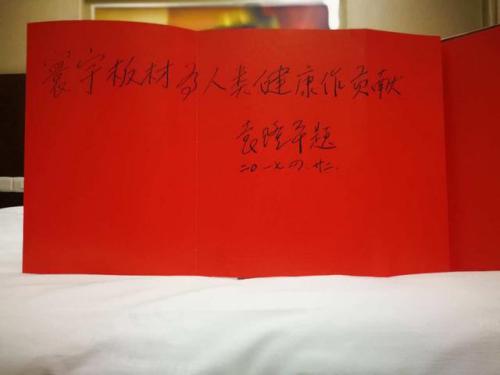 寰宇板材为人类健康作贡献
袁隆平题
二〇一七.四.廿二.